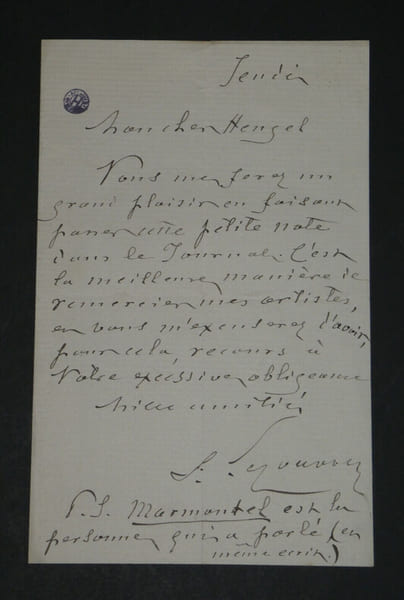 Jeudi
Mon cher Heugel
Vous me ferez un
grand plaisir en faisant
passer une petite note
dans le Journal. C'est
la meilleure manière de
remercier mes artistes,
et vous m'excuserez d'avoir,
pour cela, recours à
Votre excessive obligeance
Mille amitiés
P.S. Marmontel est la
personne qui a parlé (en
même écrit.)